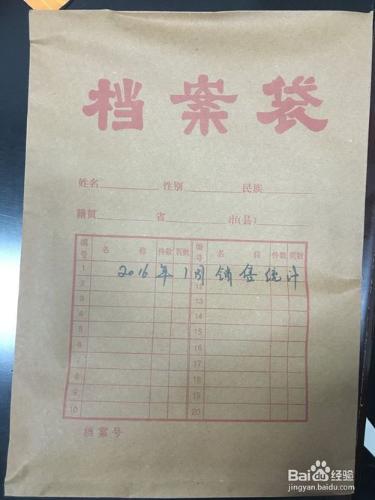 档案袋
姓名 性别 民族
籍贯 省 市(县)
编号 名 称 件数 页数 编号 名 称 件数 页数
1
2016年1月销售统计
2 12
3 13
4 14
5 15
6 16
7 17
8 18
9 19
10 20
档案号
Baidu经验
jingyan.baidu.com